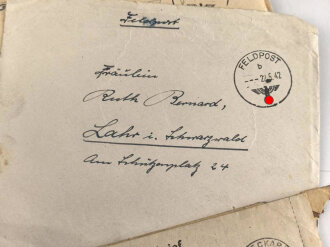 Feldpost
FELDPOST
b
--- 21.5.42
Fräulein
Ruth Bernard,
Lahr i. Schwarzwald
Am Schützenplatz 24